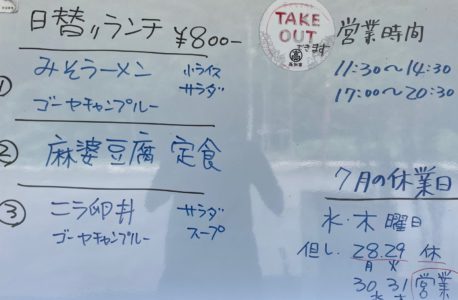 日替リランチ ¥800-
① みそラーメン 小ライス
サラダ
ゴーヤチャンプルー
② 麻婆豆腐 定食
③ ニラ卵丼 サラダ
ゴーヤチャンプルー スープ
TAKE
OUT
できます
営業時間
11:30〜14:30
17:00〜20:30
7月の休業日
水・木 曜日
但し 28.29 休
月 火
30.31 営業